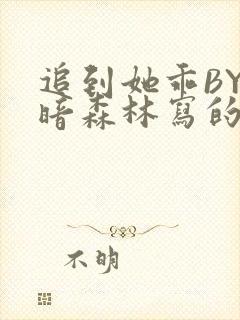 追到她乖BY
暗森林寫的
不明